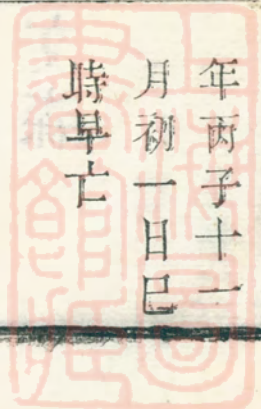 年丙子十一
月初一日巳
時早亡